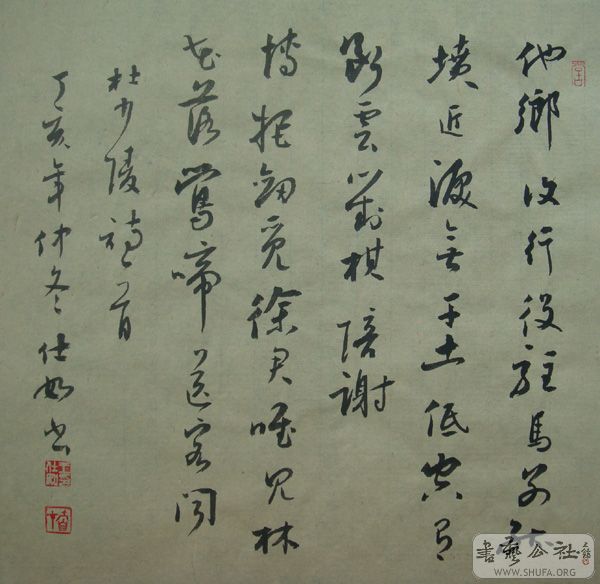 他鄉復行役駐馬別孤
墳近淚無干土低空有
斷雲對棋陪謝
傅把劍覓徐君唯見林
花落鶯啼送客聞
杜少陵詩一首
丁亥年仲冬仕如書
書藝公社
WWW.SHUFA.ORG